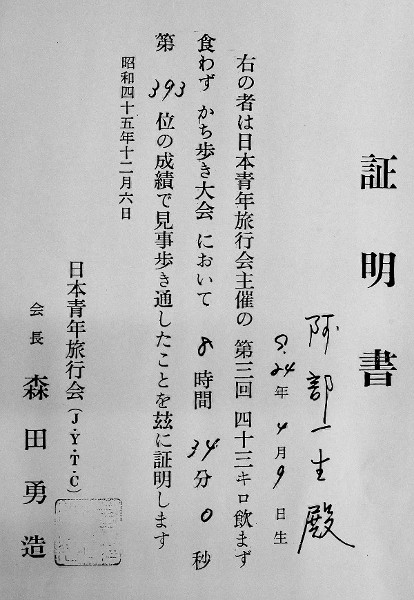 証明書
阿部一生殿
S.24年4月9日生
右の者は日本青年旅行会主催の 第三回 四十三キロ飲まず
食わず かち歩き大会 において 8時間 34分 0秒
第 393 位の成績で見事歩き通したことを玆に証明します
昭和四十五年十二月六日
日本青年旅行会(J・Y・T・C)
会長 森田勇造